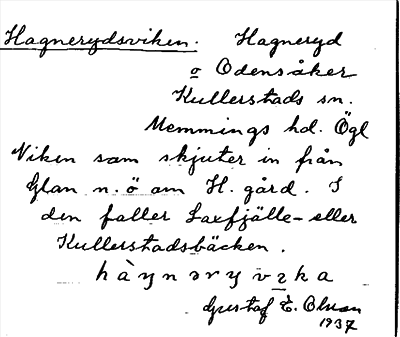 Hagnerydsviken. Hagneryd
o Odensåker
Kullerstads sn.
Memmings hd. Ögl
Viken som skjuter in från
Glan n.ö om H. gård. I
den faller Laxfjälle- eller
Kullerstadsbäcken.
hàynəry vɪka
Gustaf E. Olsson
1937